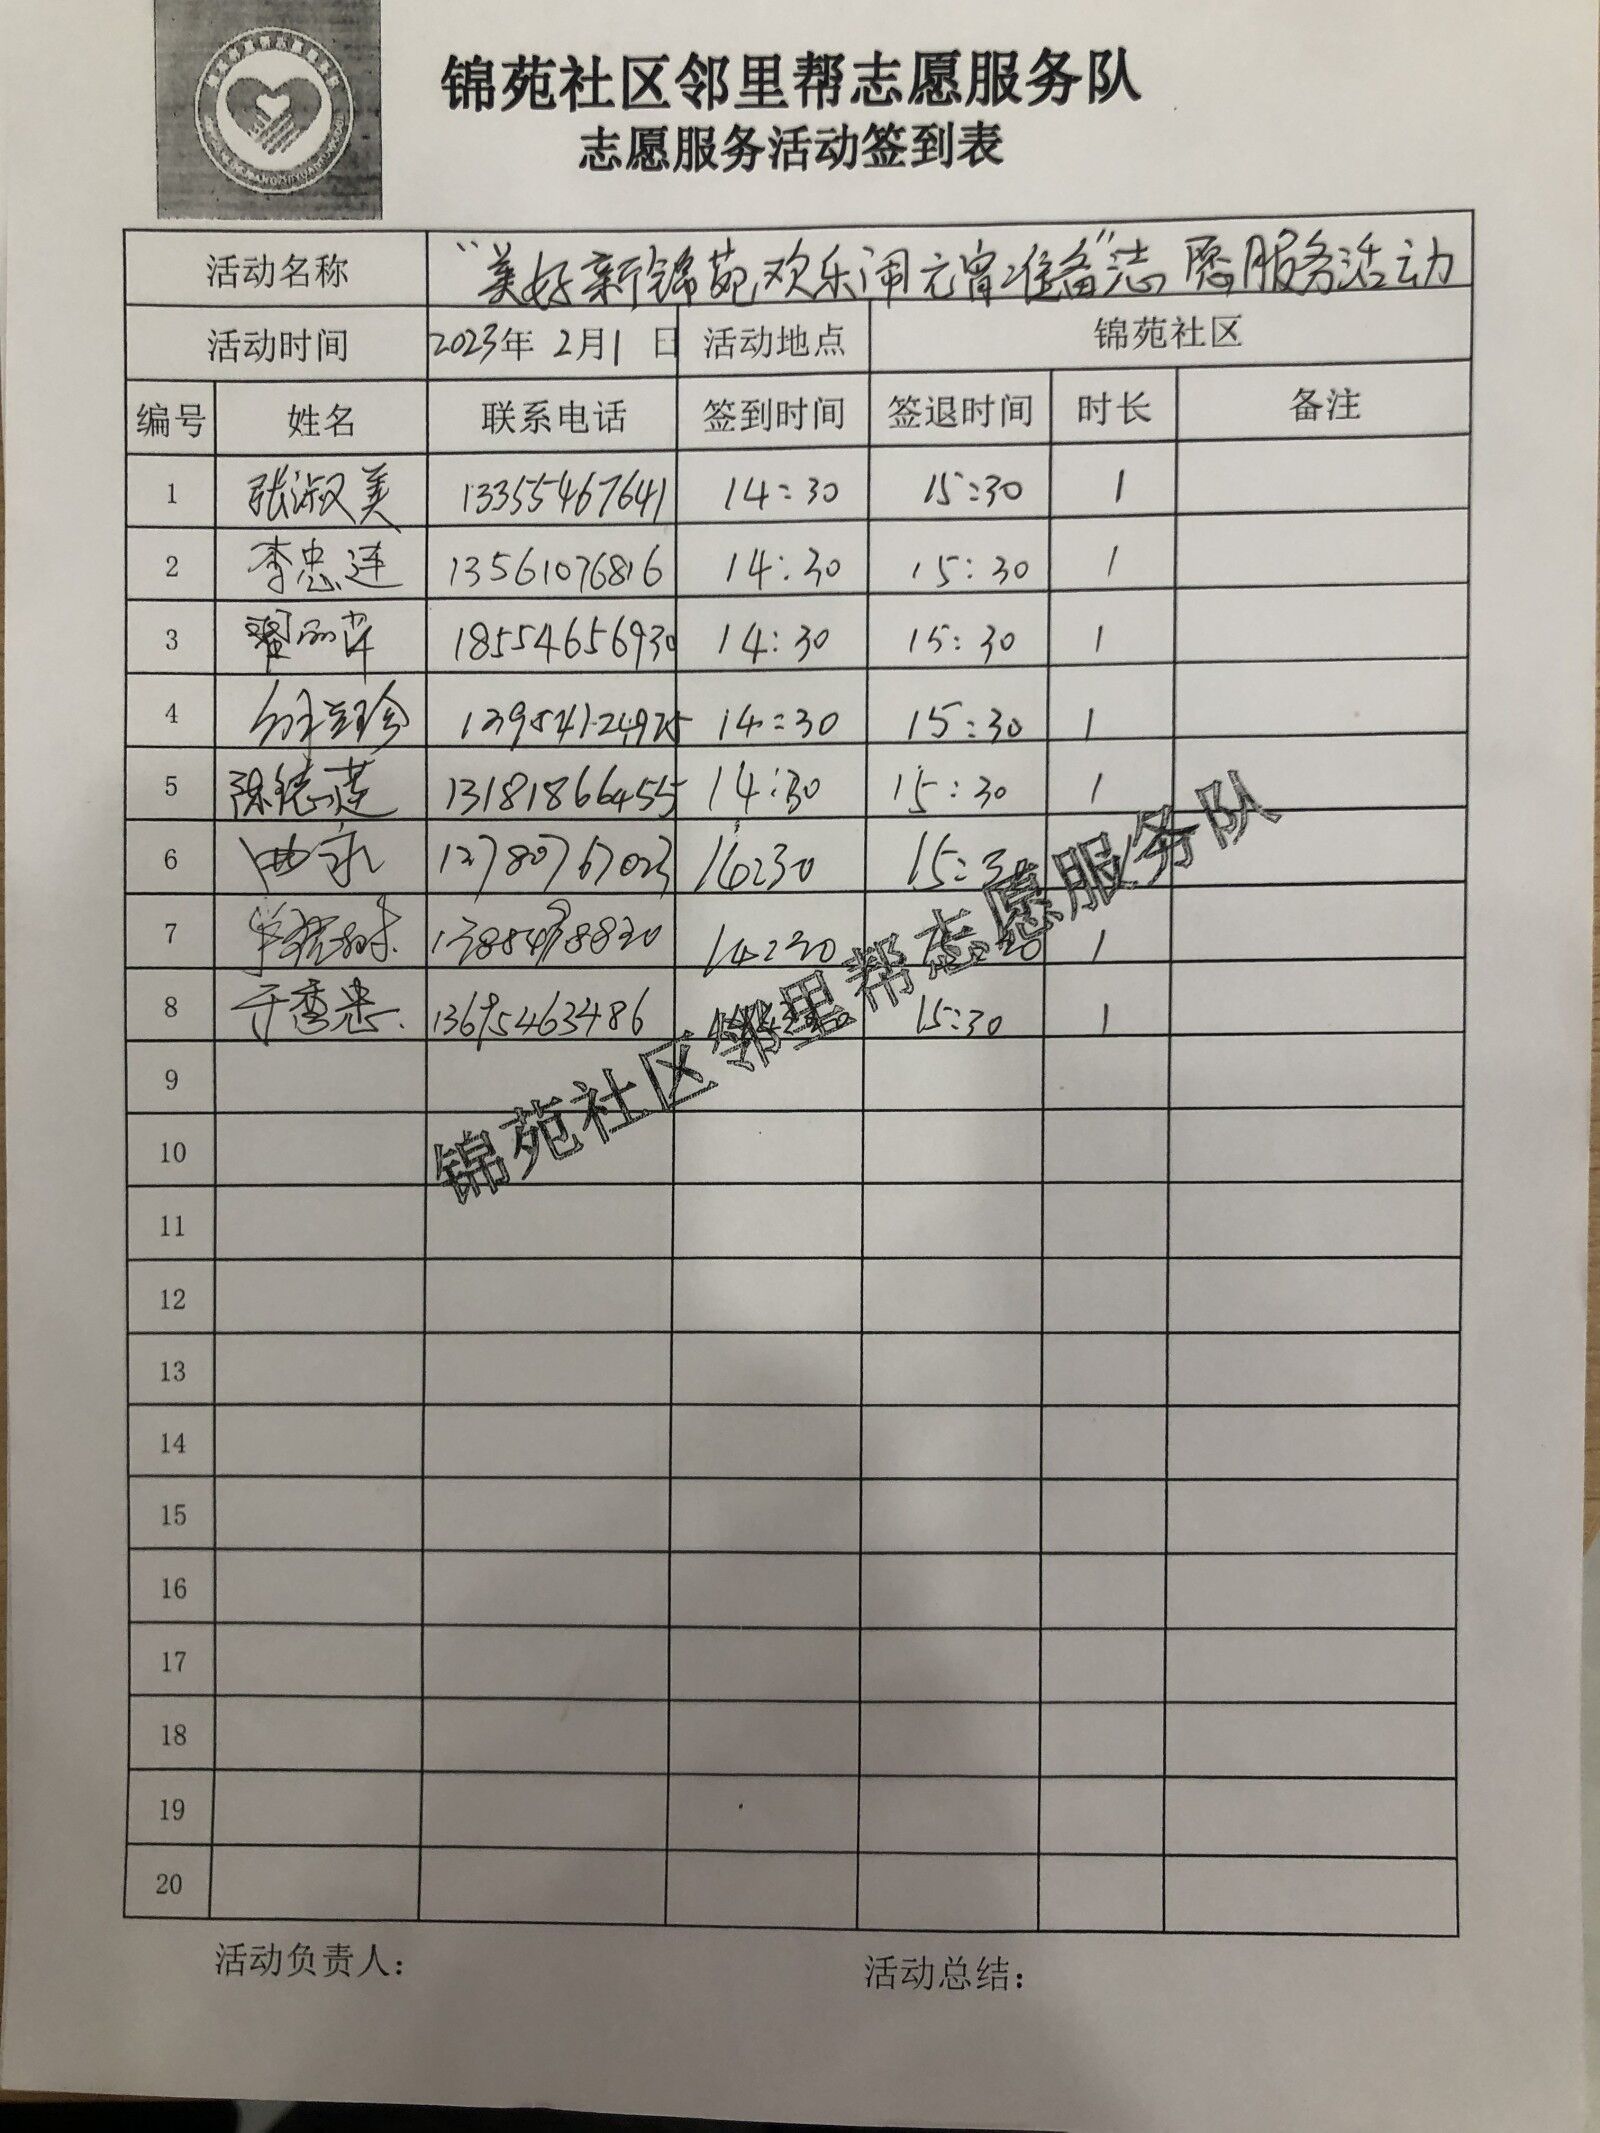 锦苑社区邻里帮志愿服务队
志愿服务活动签到表
活动名称 “美好新锦苑欢乐闹元宵准备”志愿服务活动
活动时间 2023年 2月1日 活动地点 锦苑社区
编号 姓名 联系电话 签到时间 签退时间 时长 备注
1 张淑美 13355467641 14:30 15:30 1
2 李忠连 13561076816 14:30 15:30 1
3 翟丽萍 18554656930 14:30 15:30 1
4 14:30 15:30 1
5 陈德莲 13181866455 14:30 15:30 1
6 曲永 14:30 15:30
7 14:30 1
8 于秀忠 15:30 1
9
10
11
12
13
14
15
16
17
18
19
20
锦苑社区邻里帮志愿服务队
活动负责人: 活动总结: